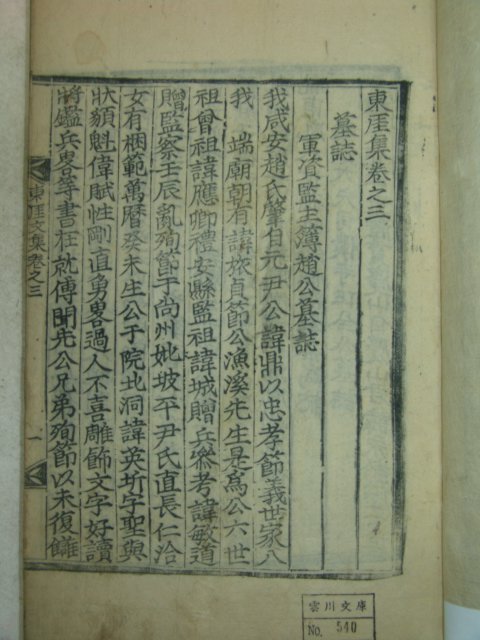 東厓集卷之三
墓誌
軍資監主簿趙公墓誌
我咸安趙氏肇自元尹公諱鼎以忠孝節義世家入
我　端廟朝有諱旅貞節公漁溪先生是爲公六世
祖曾祖諱應卿禮安縣監祖諱城贈兵叅考諱敏道
贈監察壬辰亂殉節于尙州妣坡平尹氏直長仁洽
女有梱範萬曆癸未生公于院北洞諱英圻字聖與
狀貌魁偉賦性剛直勇畧過人不喜雕飾文字好讀
將鑑兵畧等書在就傅聞先公兄弟殉節以未復讎
東厓文集卷之三
一
雲川文庫
No. 540